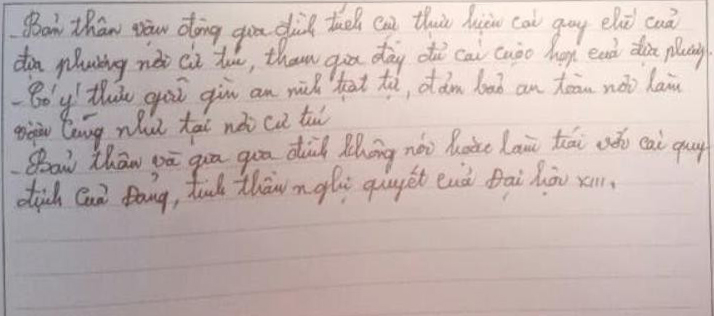 - Bản thân vận động gia đình tích cực thực hiện các quy chế của
địa phương nơi cư trú, tham gia đầy đủ các cuộc họp của địa phương.
- Có ý thức giữ gìn an ninh trật tự, đảm bảo an toàn nơi làm
việc cũng như tại nơi cư trú
- Bản thân và gia gia đình không nói hoặc làm trái với các quy
định của Đảng, tinh thần nghị quyết của Đại hội XIII.